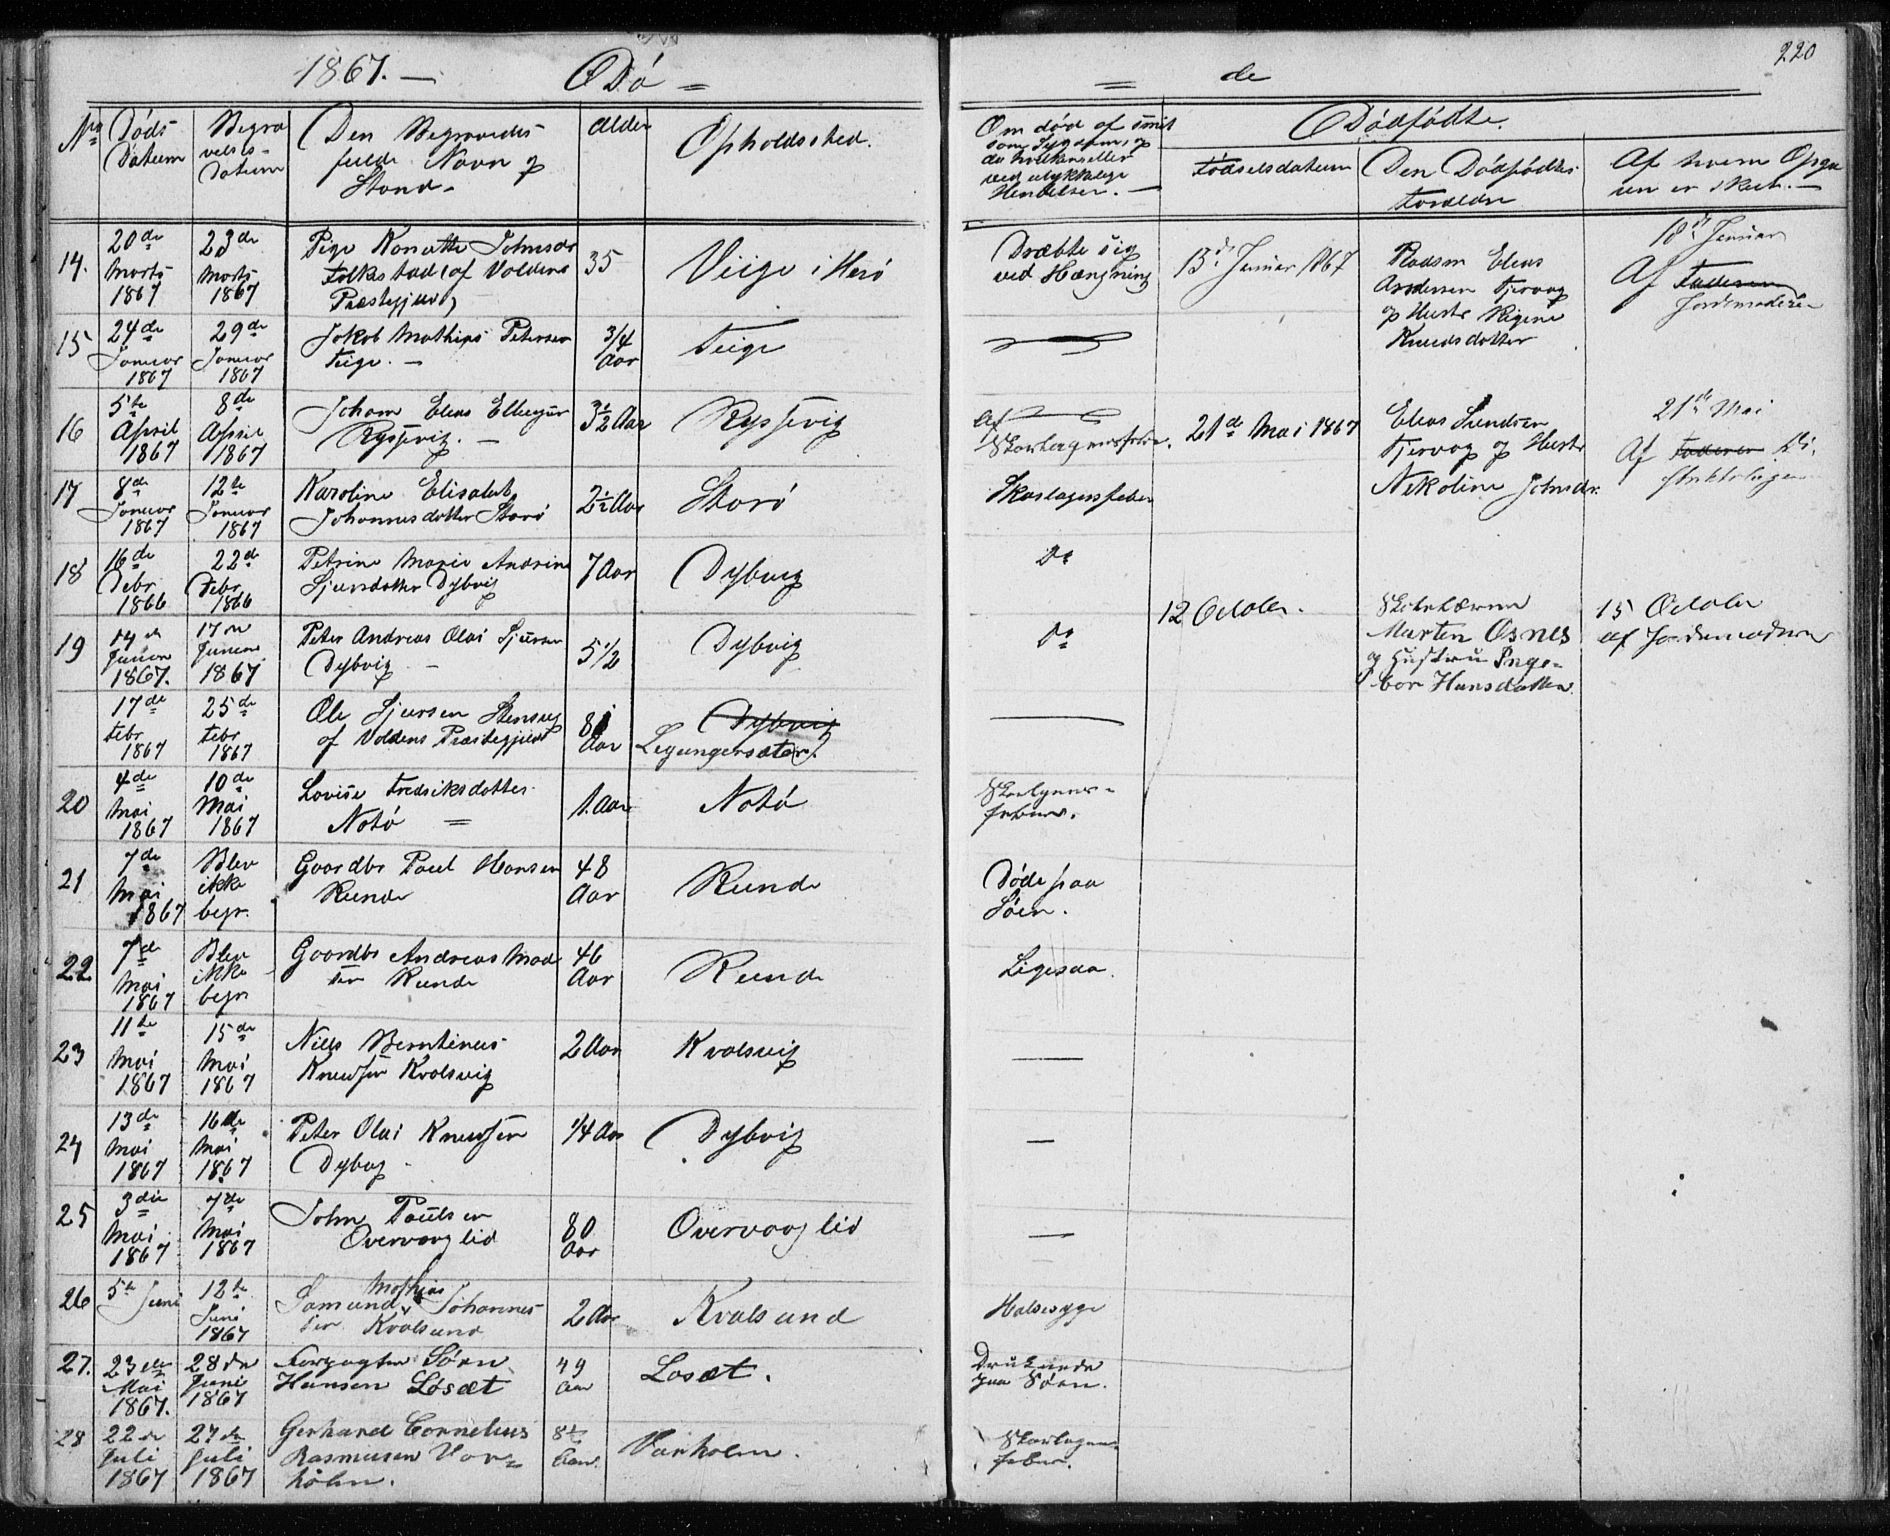 1867. — Dø =
= de
220
No
Døds
Datum
Begra
velses-
Datum
Den Begravedes
fulde Navn og
Stand -
Alder
Opholdssted.
Om død af smit
som Sygdom, og
da hvilken eller
ved ulykkelige
Hendelser. —
Dødfødte.
Fødselsdatum
Den Dødfødtes
Foreldre
Af hvem Opga
ven er skeet. —
14.
20de
Marts
1867
23de
Marts
1867
Pige Johnsdr
Folkestad (af Voldens
Præstegjeld)
35
Veige i Herø
Dræbte sig
ved Hængning
13de Januar 1867
Pladsm Elias
Andersen Tjervag
og Hustr Regine
Knudsdotter
18de Januar
Af Faderen
Jordemoderen
15
24de
Januar
1867
29de
Januar
1867
Jakob Mathias Petersen
Teige. —
3/4
Aar
Teige
16
5te
April
1867
8de
April
1867
Johan Elias
3½ Aar
Af
21de Mai 1867
Elias
Tjervag og Hustr
Nikoline Johnsdr.
21de Mai
Af Faderen Di-
striktslægen
17
8de
Januar
1867
12te
Januar
1867
Karoline Elisabet
Johannesdotter Storø
2½ Aar
Storø
Skarlagensfeber
18
16de
Febr
1866
22de
Febr
1866
Petrine Marie Andrine
Sjursdotter Dybvig
7 Aar
Dybvig
Do
19
14de
Januar
1867.
17de
Januar
1867
Peter Andreas Olai Sjursen
Dybvig —
5 1/2
Dybvig
Do
12 October.
Marten Osnes
og Hustru Inge-
bor Hansdatter.
15 October
af Jordemoderen
17de
Febr
1867
25de
Febr
1867
Ole Sjursen
af Voldens Præstegjeld
81
Aar
Dybvig
Leganger sæter.
20
4de
Mai
1867
10de
Mai
1867
Lovise Fredriksdotter
Notø =
1. Aar
Notø
21
7de
Mai
1867
Blev
ikke
begr.
Gaardbr Paul Hansen
Runde
48
Aar
Runde
Døde paa
Søen.
22
7de
Mai
1867
Blev
ikke
begr
Gaardbr Andreas Mad
sen Runde
46
Aar
Runde
Ligesaa.
23
11te
Mai
1867
15de
Mai
1867
Nils Berntinus
Knudsen Kvalsvig
2 Aar
Kvalsvig
—
24
13de
Mai
1867
16de
Mai
1867
Peter Olai Knudsen
Dybvig
1/4 Aar
Dybvig
—
25
3die
Mai
1867
7de
Mai
1867
John Paulsen
Overvaag lid
80
Aar
Overvaag lid
—
26
5te Juni
12te
Juni
1867
Mathias
Samund Johannes-
sen Kvalsund
2 Aar
Kvalsund
Halsesyge
27.
23de
Mai
1867.
28de
Juni
1867
Forpagter Søren
Hansen Løsæt
49
Aar
Losæt.
Druknede
paa Søen.
28
22de
Juli
1867
27de
Juli
1867
Gerhard Cornelius
Rasmusen Vor=
holm.
Aar.
Varholm.
Skarlagens
feber.